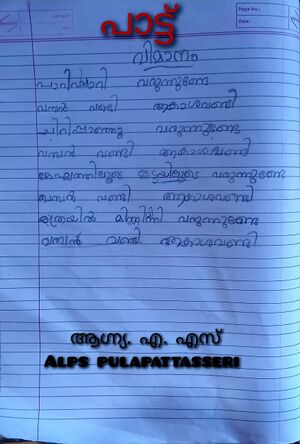 Page No.
Date:
പാട്ട്
വിമാനം
പാറിപ്പാറി വരുന്നുണ്ടേ
വമ്പൻ വണ്ടി ആകാശവണ്ടി
ചീറിപ്പാഞ്ഞു വരുന്നുണ്ടേ
വമ്പൻ വണ്ടി ആകാശവണ്ടി
മേഘത്തിലൂടെ ഇടയിലൂടെ വരുന്നുണ്ടേ
വമ്പൻ വണ്ടി ആകാശവണ്ടി
മിന്നിമിന്നി വരുന്നുണ്ടേ
വമ്പൻ വണ്ടി ആകാശവണ്ടി
ആഗ്ന്യ. എ. എസ്
ALPS PULAPATTASSERI